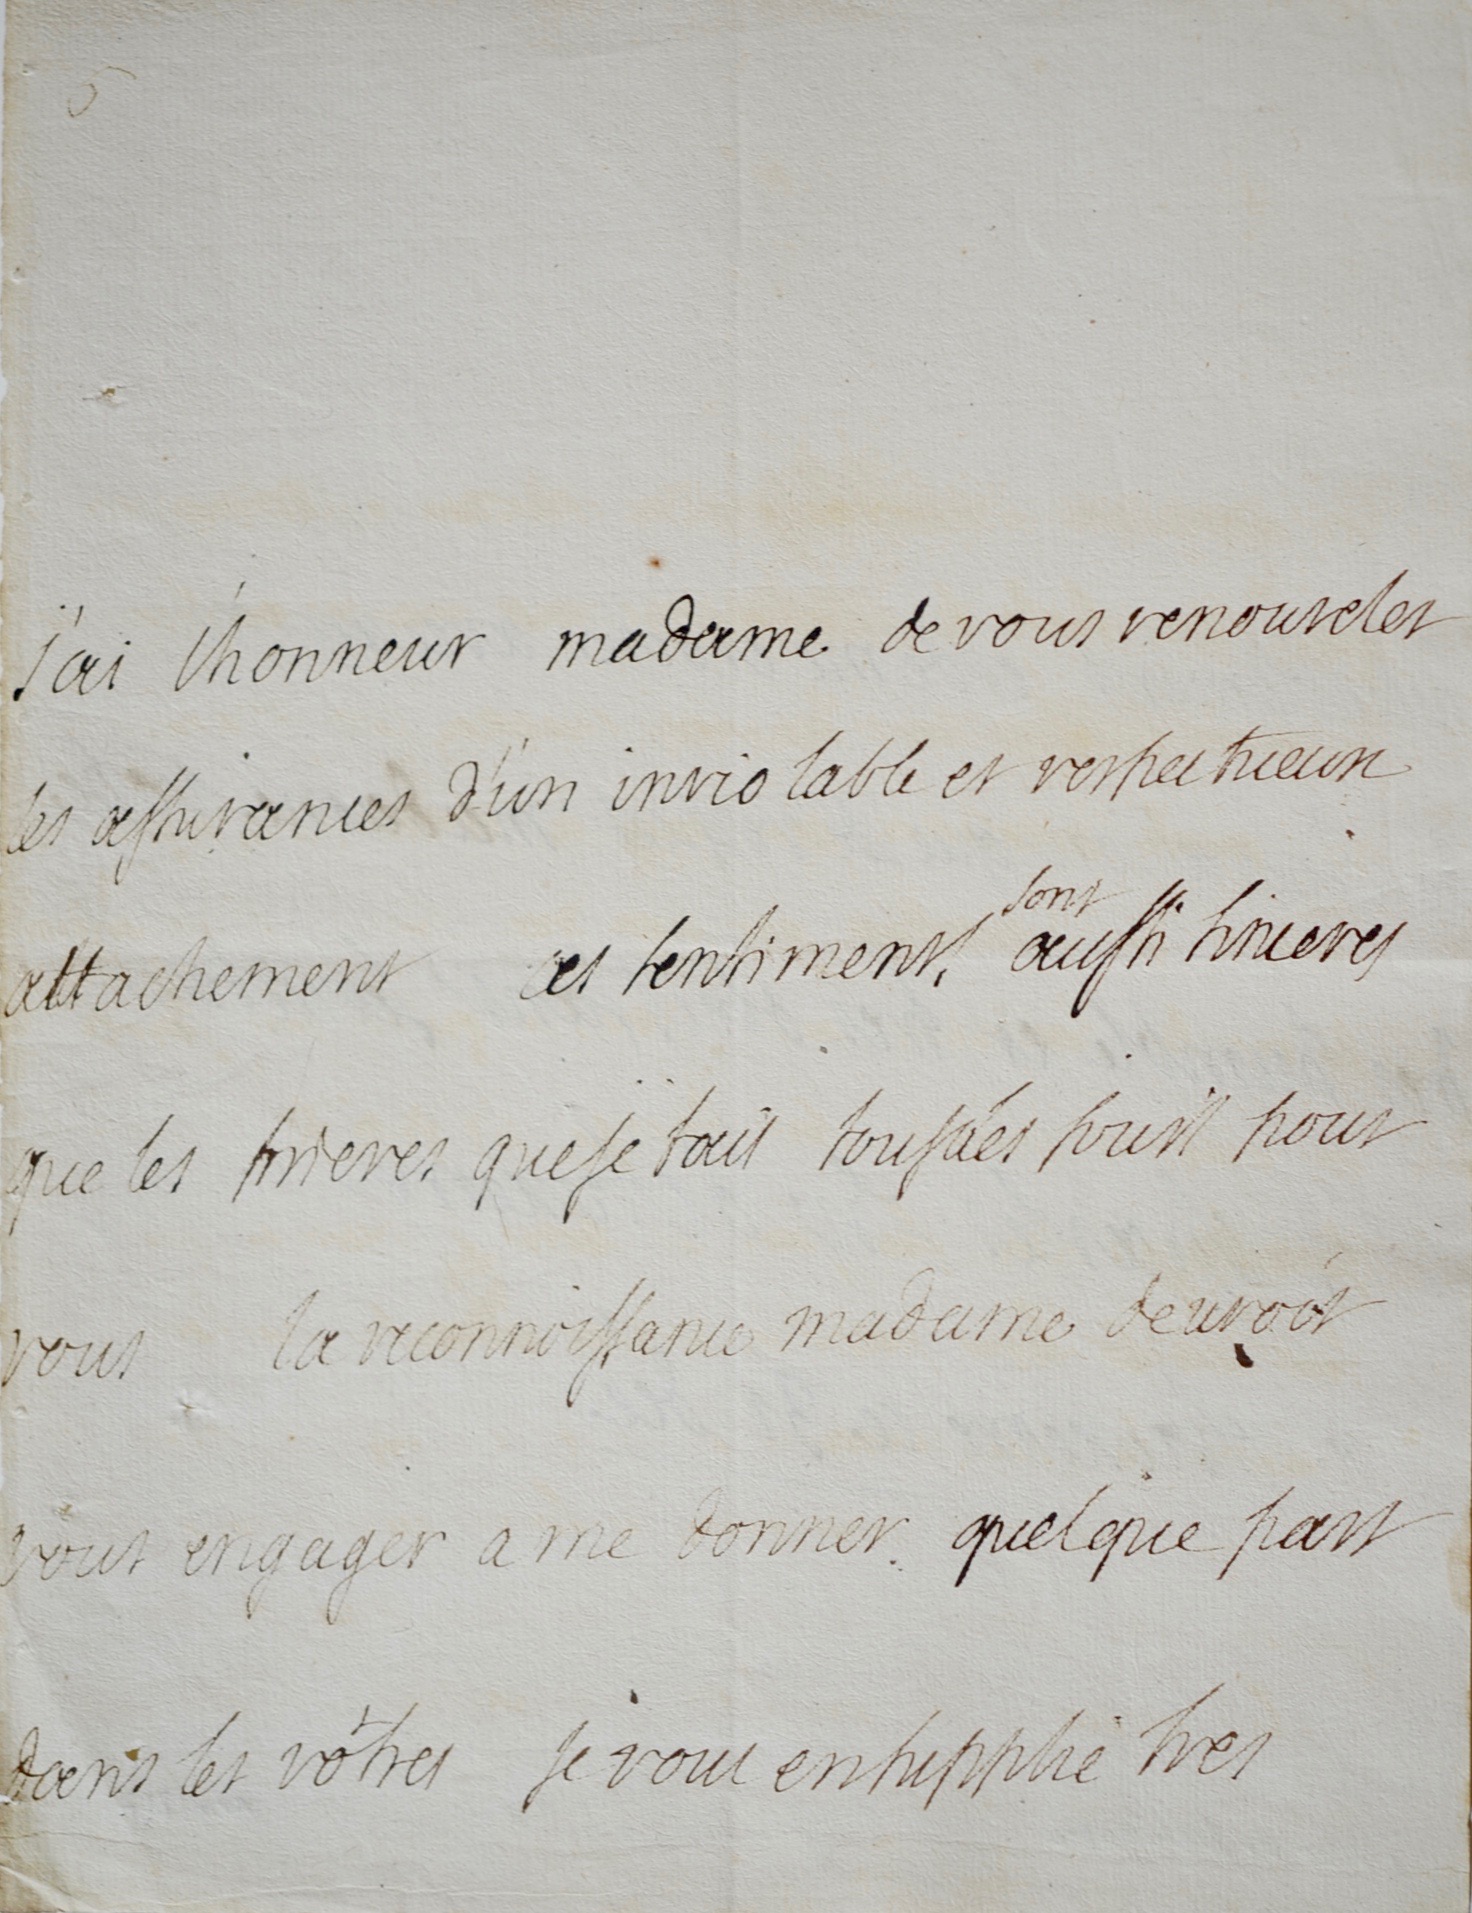 5
j'ai l'honneur madame de vous renouveler
les assurances d'un inviolable et respectueux
attachement ces sentiments sont aussi sinceres
que les prieres que je fais tous les jours pour
vous la reconnoissance madame devroit
vous engager a me donner quelque part
dans les vôtres je vous en supplie tres